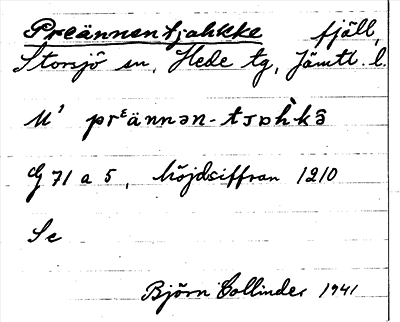 Preännentjahkke fjäll,
Storsjö sn, Hede tg, Jämtl. l.
M' prᵋännən-tᴊɒh̀kə̑
G 71 a 5, höjdsiffran 1210
Se
Björn Collinder 1941